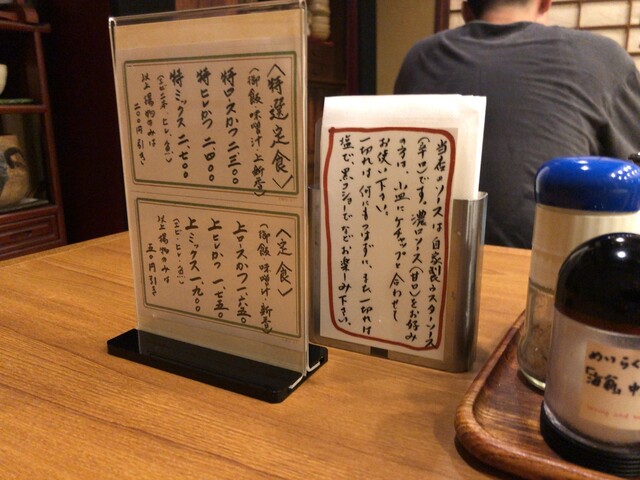 〈特選定食〉
（御飯・味噌汁・上新香）
特ロースかつ 二、三〇〇
特ヒレかつ 二、四〇〇
特ミックス 二、七〇〇
以上揚物のみは
二〇〇円引き
〈定食〉
（御飯・味噌汁・新香）
上ロースかつ 一、六五〇
上ヒレかつ 一、七五〇
上ミックス 一、九〇〇
以上揚物のみは
五〇円引き
当店のソースは自家製ウスターソース
（辛口）です。濃口ソース（甘口）をお好み
の方は、小皿にケチャップと合わせて
お使い下さい。
一切れは何にもつけずに、もう一切れは
塩で、黒コショーでなどお楽しみ下さい。